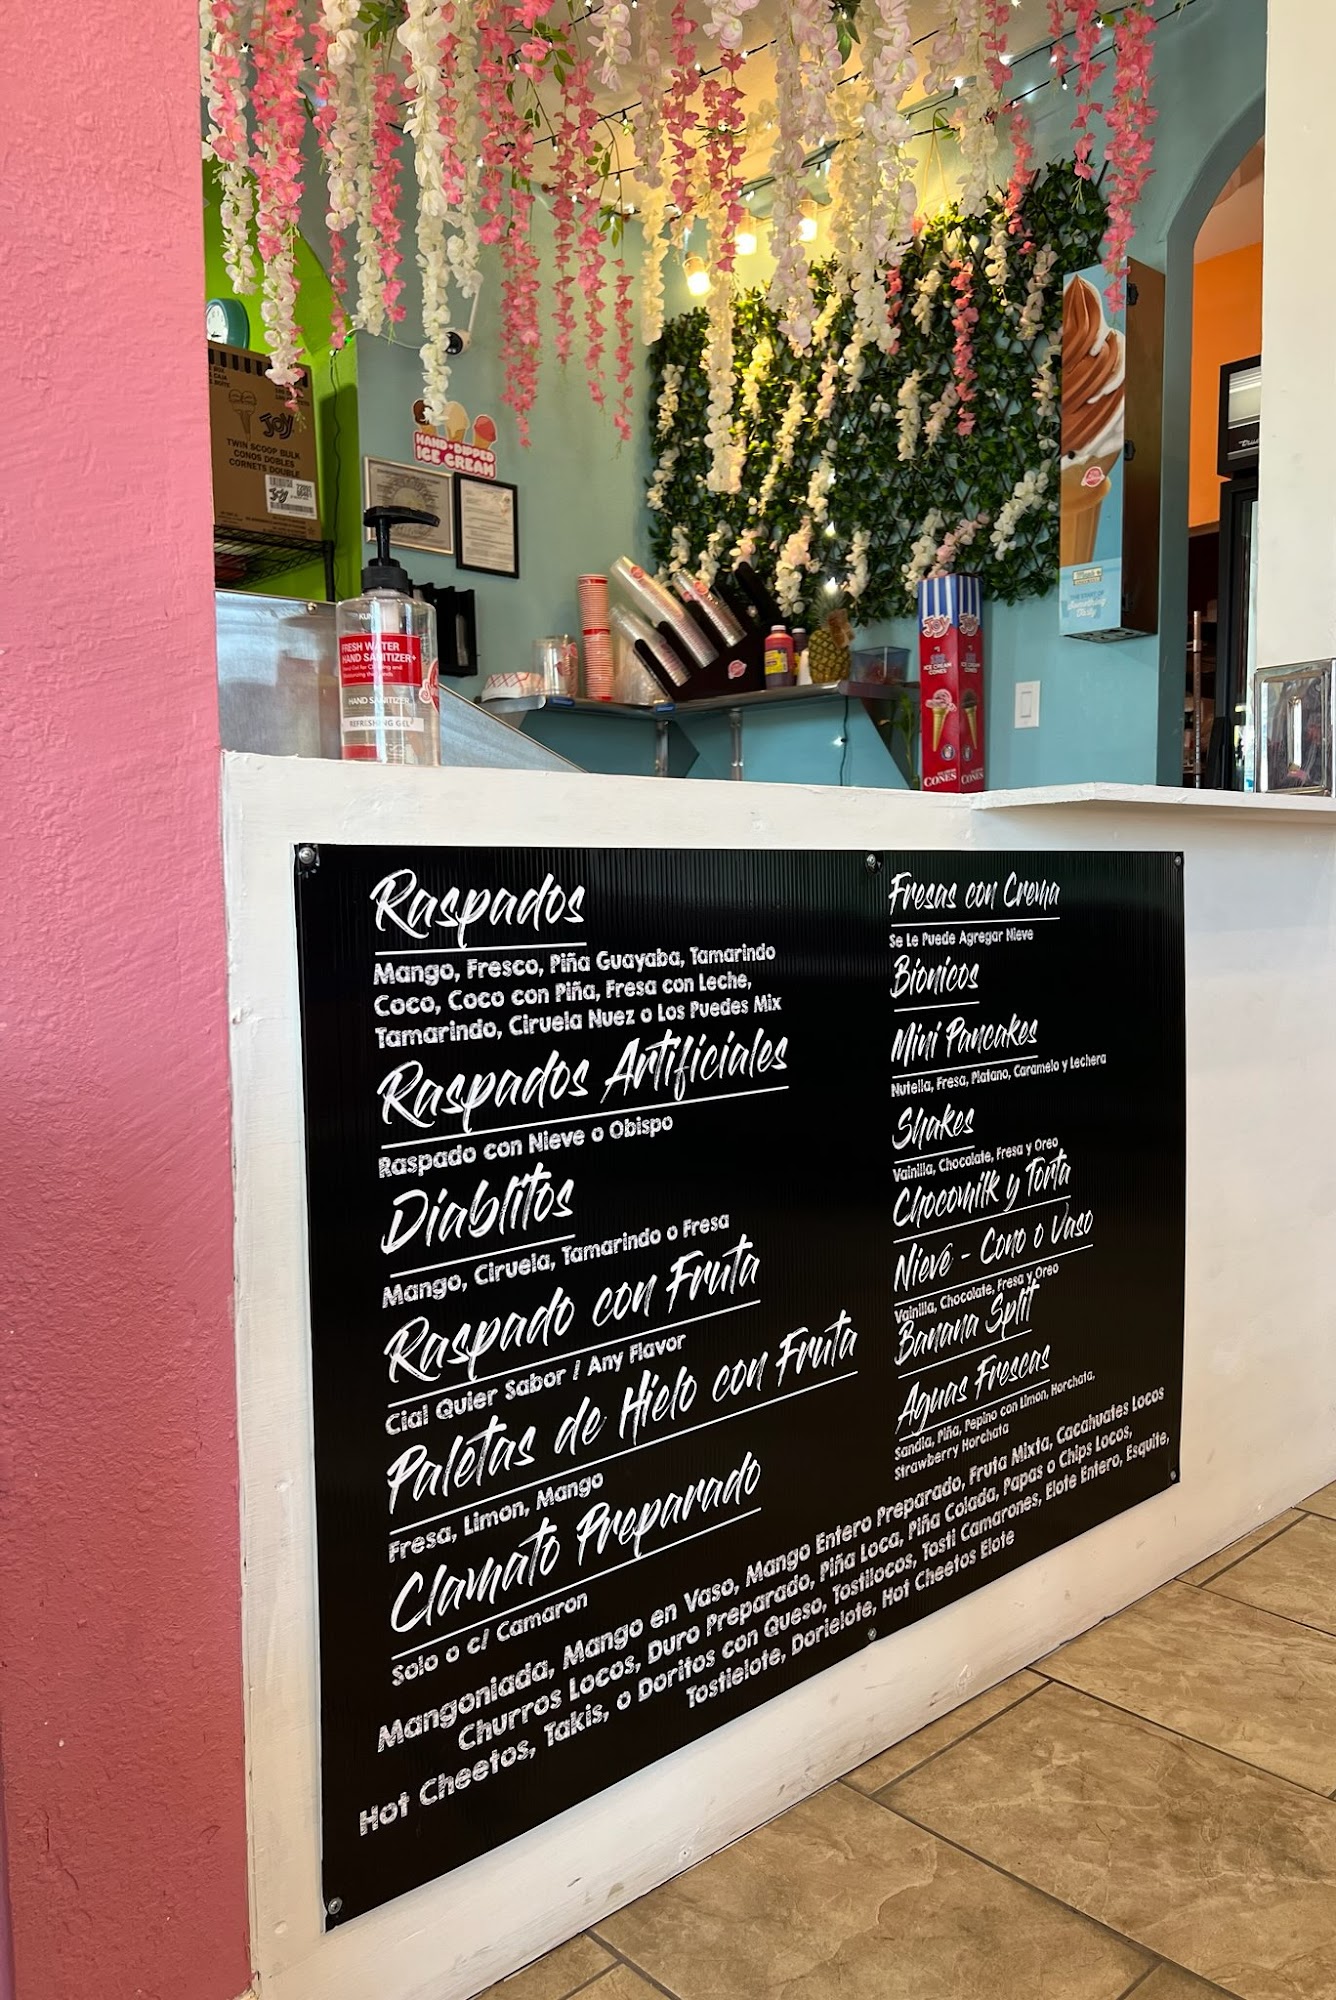 JOY
TWIN SCOOP BULK
CONOS DOBLES
CORNETS DOUBLE
HAND-DIPPED
ICE CREAM
FRESH WATER
HAND SANITIZER+
HAND SANITIZER
REFRESHING GEL
JOY
ICE CREAM
CONES
CONES
Raspados
Mango, Fresco, Piña Guayaba, Tamarindo
Coco, Coco con Piña, Fresa con Leche,
Tamarindo, Ciruela Nuez o Los Puedes Mix
Raspados Artificiales
Raspado con Nieve o Obispo
Diablitos
Mango, Ciruela, Tamarindo o Fresa
Raspado con Fruta
Cial Quier Sabor / Any Flavor
Paletas de Hielo con Fruta
Fresa, Limon, Mango
Clamato Preparado
Solo o c/ Camaron
Fresas con Crema
Se Le Puede Agregar Nieve
Bionicos
Mini Pancakes
Nutella, Fresa, Platano, Caramelo y Lechera
Shakes
Vainilla, Chocolate, Fresa y Oreo
Chocomilk y Torta
Nieve - Cono o Vaso
Vainilla, Chocolate, Fresa y Oreo
Banana Split
Aguas Frescas
Sandia, Piña, Pepino con Limon, Horchata,
Strawberry Horchata
Mangoniada, Mango en Vaso, Mango Entero Preparado, Fruta Mixta, Cacahuates Locos
Churros Locos, Duro Preparado, Piña Loca, Piña Colada, Papas o Chips Locos,
Hot Cheetos, Takis, o Doritos con Queso, Tostilocos, Tosti Camarones, Elote Entero, Esquite,
Tostielote, Dorielote, Hot Cheetos Elote